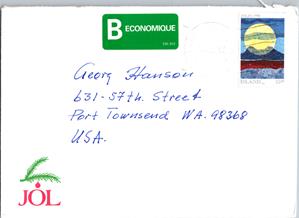 B ECONOMIQUE
Georg Hanson
631-57th. Street
Port Townsend WA. 98368
U.S.A.
JÓL